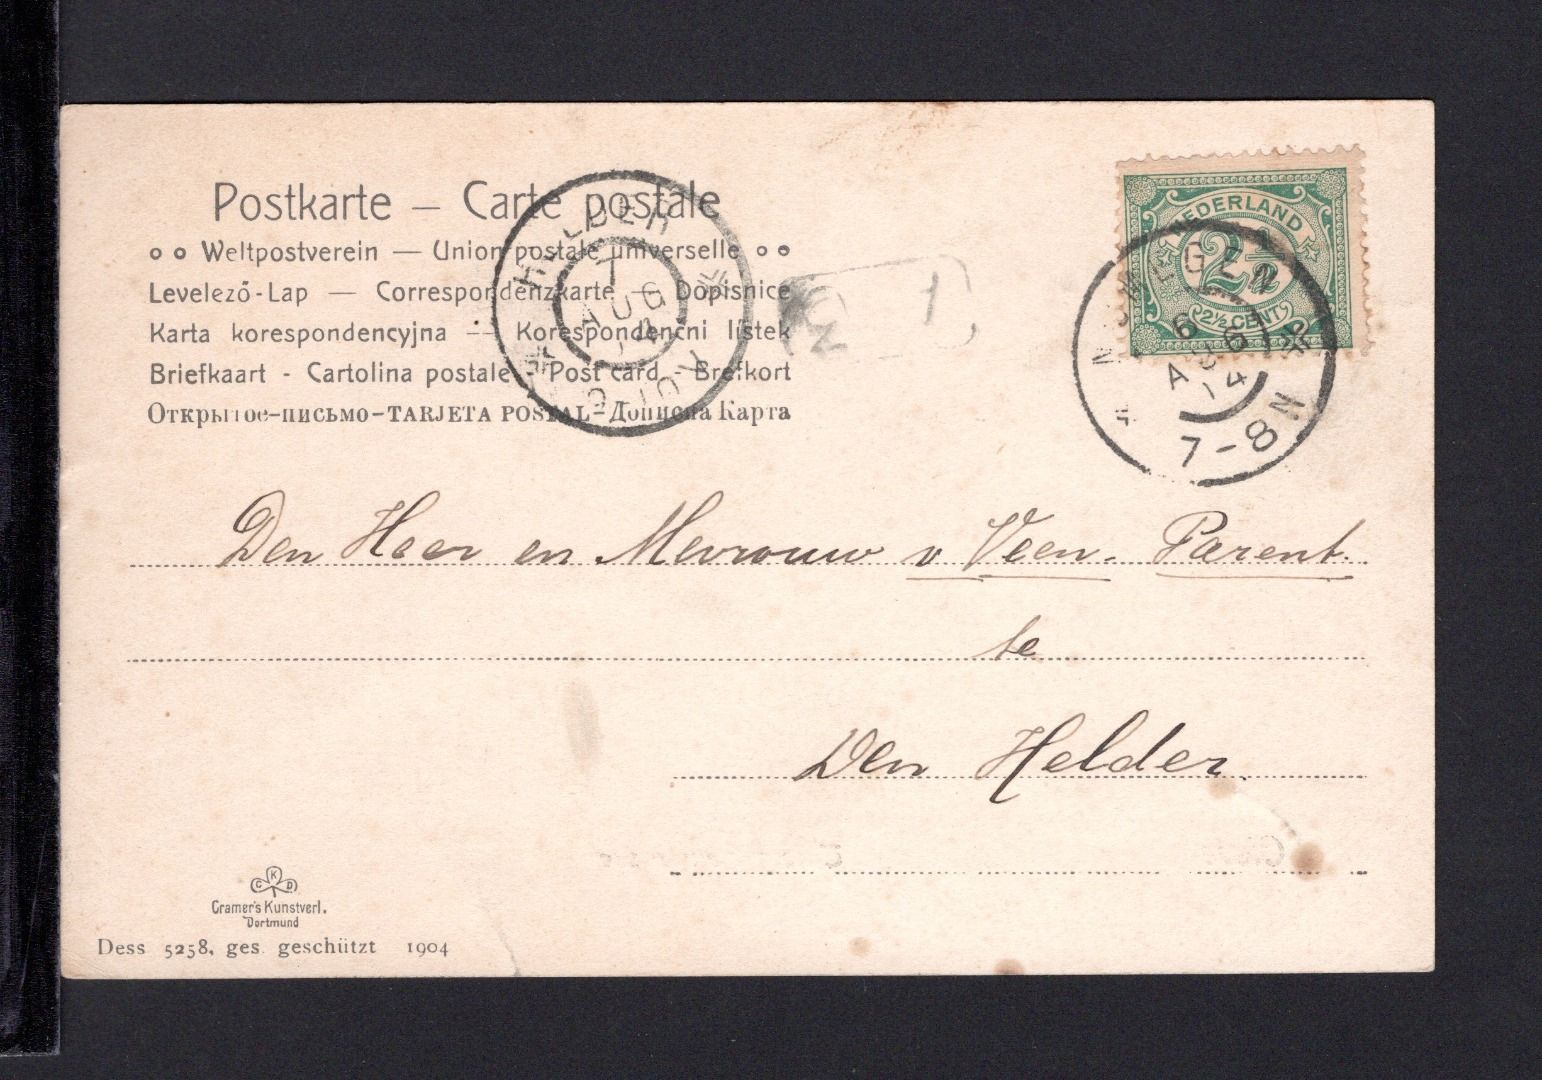 Postkarte — Carte postale
Weltpostverein — Union postale universelle
Levelező-Lap — Correspondenzkarte — Dopisnice
Karta korespondencyjna — Korespondenční lístek
Briefkaart - Cartolina postale - Post card Brefkort
Открытое-письмо-TARJETA POSTAL-Дописна Карта
HELDER
7
AUG
NEDERLAND
2½
2½ CENT
6 AUG 14
7-8N
Den Heer en Mevrouw v Veen. Parent.
te
Den Helder.
C K D
Cramer's Kunstverl.
Dortmund
Dess 5258, ges. geschützt 1904